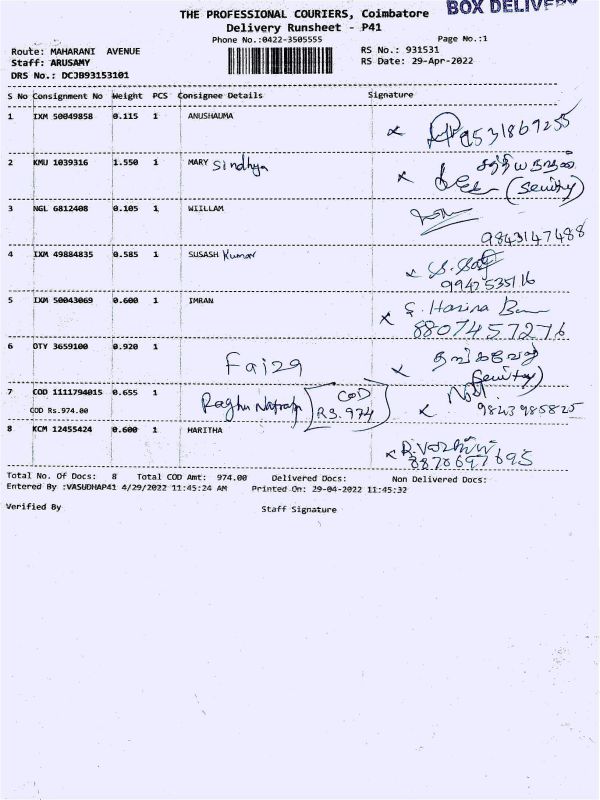 BOX DELIVERY
THE PROFESSIONAL COURIERS, Coimbatore
Delivery Runsheet - P41
Phone No.:0422-3505555 Page No.:1
Route: MAHARANI AVENUE RS No.: 931531
Staff: ARUSAMY RS Date: 29-Apr-2022
DRS No.: DCJB93153101
S No Consignment No Weight PCS Consignee Details Signature
1 IXM 50049858 0.115 1 ANUSHAUMA
2 KMU 1039316 1.550 1 MARY Sindhya
3 NGL 6812408 0.105 1 WIILLAM
9843147488
4 IXM 49884835 0.585 1 SUSASH Kumar
9942535116
5 IXM 50043069 0.600 1 IMRAN
8807457276
6 DTY 3659100 0.920 1
7 COD 1111794015 0.655 1 Raghu COD
COD Rs.974.00 RS.974 9843985825
8 KCM 12455424 0.600 1 HARITHA
8870697695
Total No. Of Docs: 8 Total COD Amt: 974.00 Delivered Docs: Non Delivered Docs:
Entered By :VASUDHAP41 4/29/2022 11:45:24 AM Printed On: 29-04-2022 11:45:32
Verified By Staff Signature